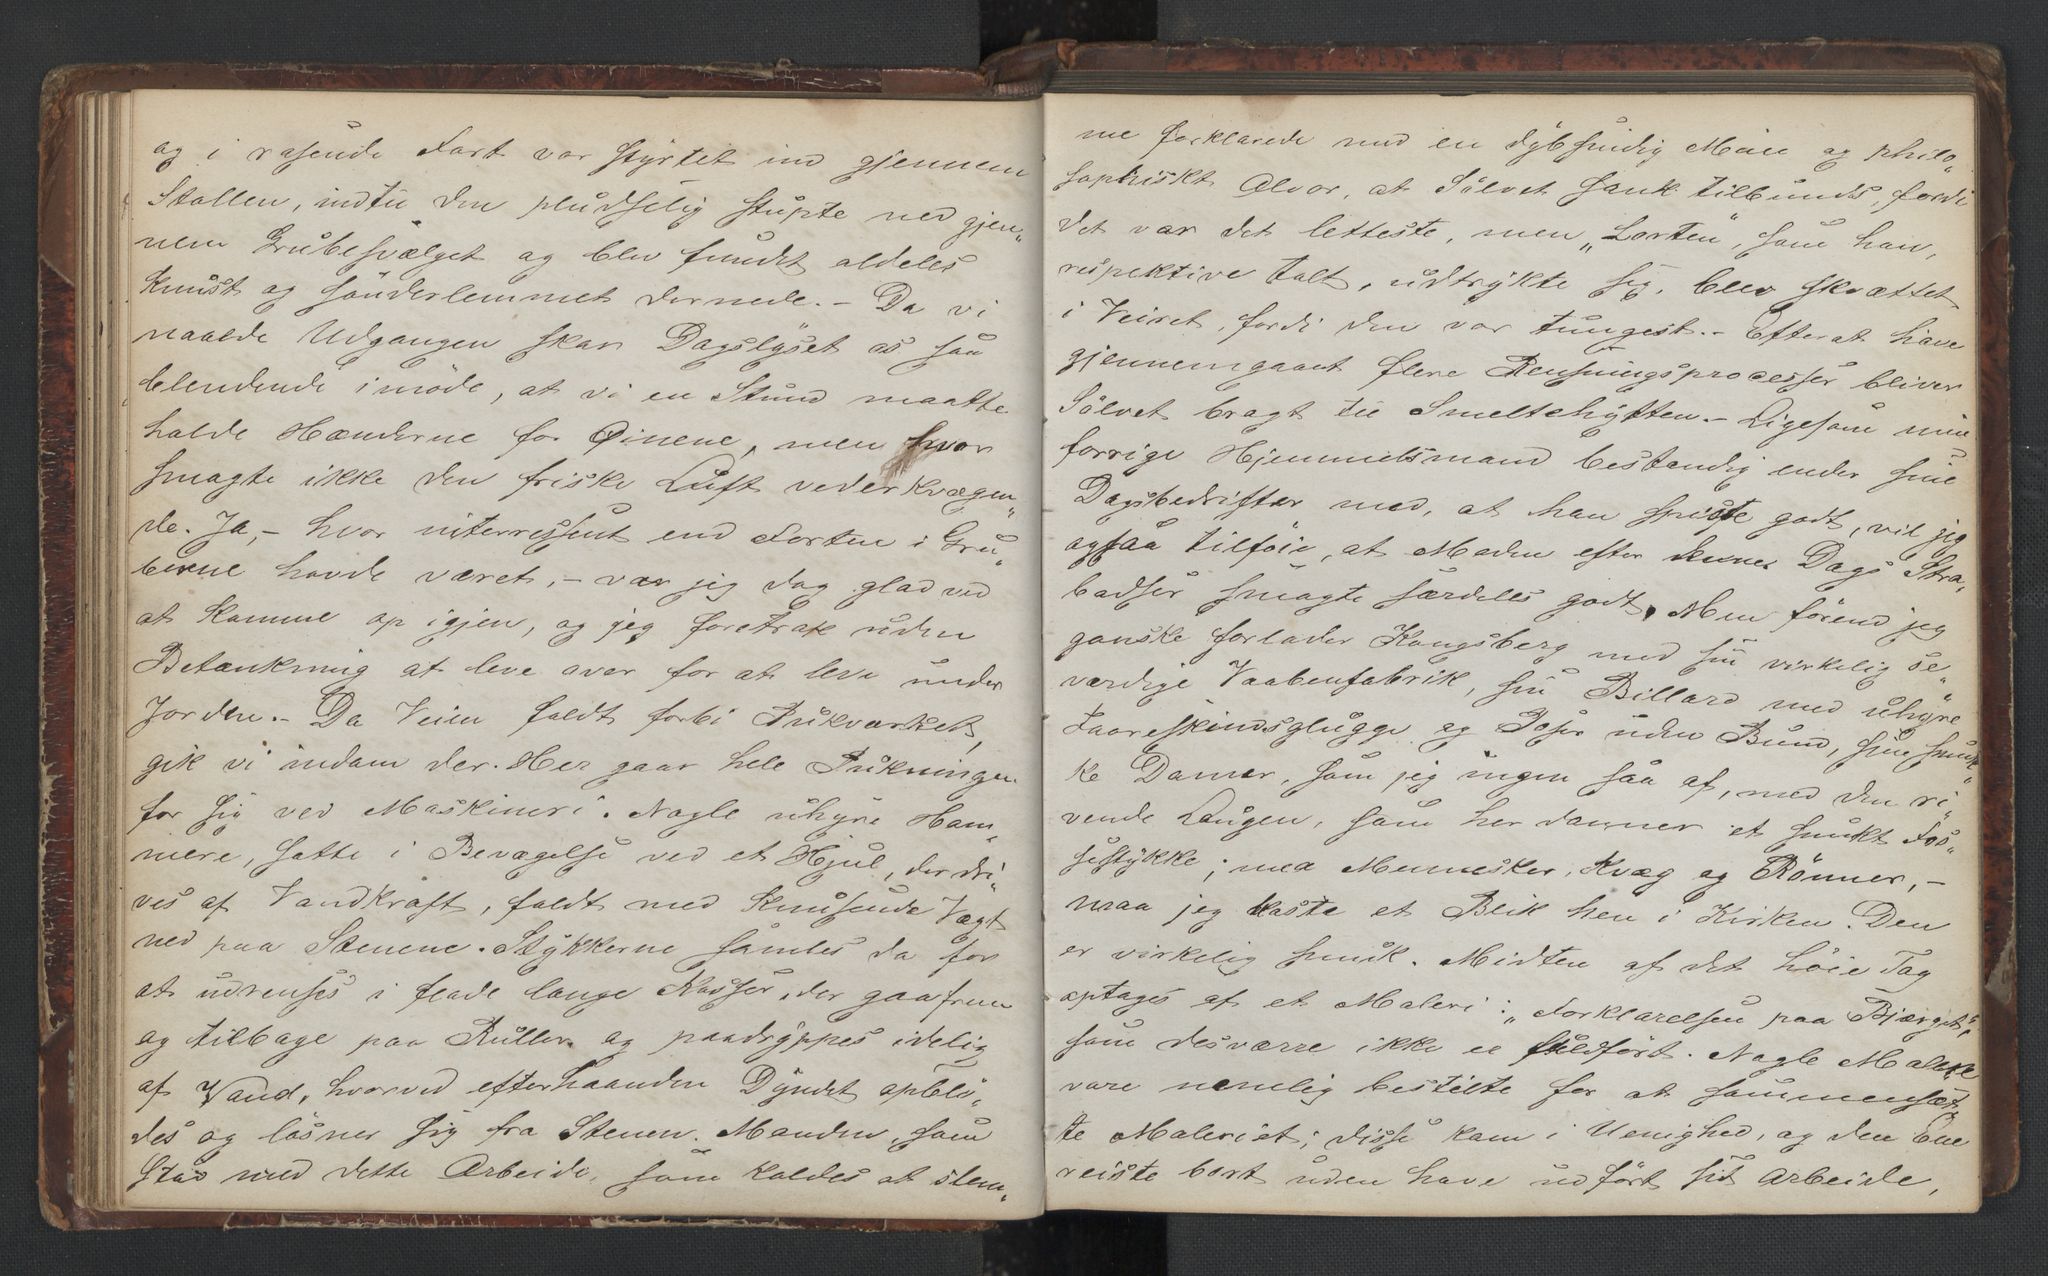 og i rasende Fart var styrtet ind gjennem
Stollen, indtil den pludselig stupte ned gjen„
nem Grubesvælget og blev fundet aldeles
knust og sønderlemmet dernede. – Da vi
naaede Udgangen skar Dagslyset os saa
blendende imøde, at vi en Stund maatte
holde Hænderne for Øinene, men hvor
smagte ikke den friske Luft vederkvægen„
de. Ja, – hvor interressent end Farten i Gru„
berne havde været, – var jeg dog glad ved
at komme op igjen, og jeg foretrak uden
Betænkning at leve over for at leve under
Jorden. – Da Veien faldt forbi Pukværket,
gik vi indom der. Her gaar hele Pukningen
for sig ved Maskineri. Nogle uhyre Ham„
mere, satte i Bevægelse ved et Hjul, der dri„
ves af Vandkraft, faldt med knusende Vægt
ned paa Stenene. Stykkerne samles da for
at udrenses i flade lange Kasser, der gaa frem
og tilbage paa Ruller og paadryppes idelig
af Vand, hvorved efterhaanden Dyndet opblø„
des og løsner sig fra Stenen. Manden, som
stod med dette Arbeide, som kaldes at slem„
me forklarede med en dybsindig Mine og philo„
sophiskt Alvor, at Sølvet sank tilbunds, fordi
det var det letteste, men „Lorten“, som han,
respektive talt, udtrykte sig, blev skvættet
i Veiret, fordi den var tungest. – Efterat have
gjennemgaaet flere Rensningsprocesser bliver
Sølvet bragt til Smeltehytten. – Ligesom min
forrige Hjemmelsmand bestandig ender sine
Dagsbedrifter med, at han spiste godt, vil jeg
ogsaa tilføie, at Maden efter denne Dags Stra„
badser smagte særdeles godt. Men førend jeg
ganske forlader Kongsberg med sin virkelig se„
værdige Vaabenfabrik, sin Billard med uhyre
Faareskindsglugge og Poser uden Bund, sine smuk„
ke Damer, som jeg ingen saa af, med den ri„
vende Laugen, som her danner et smukt Fos„
sestykke; med Mennesker, Kvæg og Rønner, –
maa jeg kaste et Blik hen i Kirken. Den
er virkelig smuk. Midten af det høie Tag
optages af et Maleri: „Forklarelsen paa Bjærget“,
som desværre ikke er fuldført. Nogle Malere
vare nemlig bestilte for at sammensæt„
te Maleriet; disse kom i Uenighed, og den Ene
reiste bort uden have udført sit Arbeide,